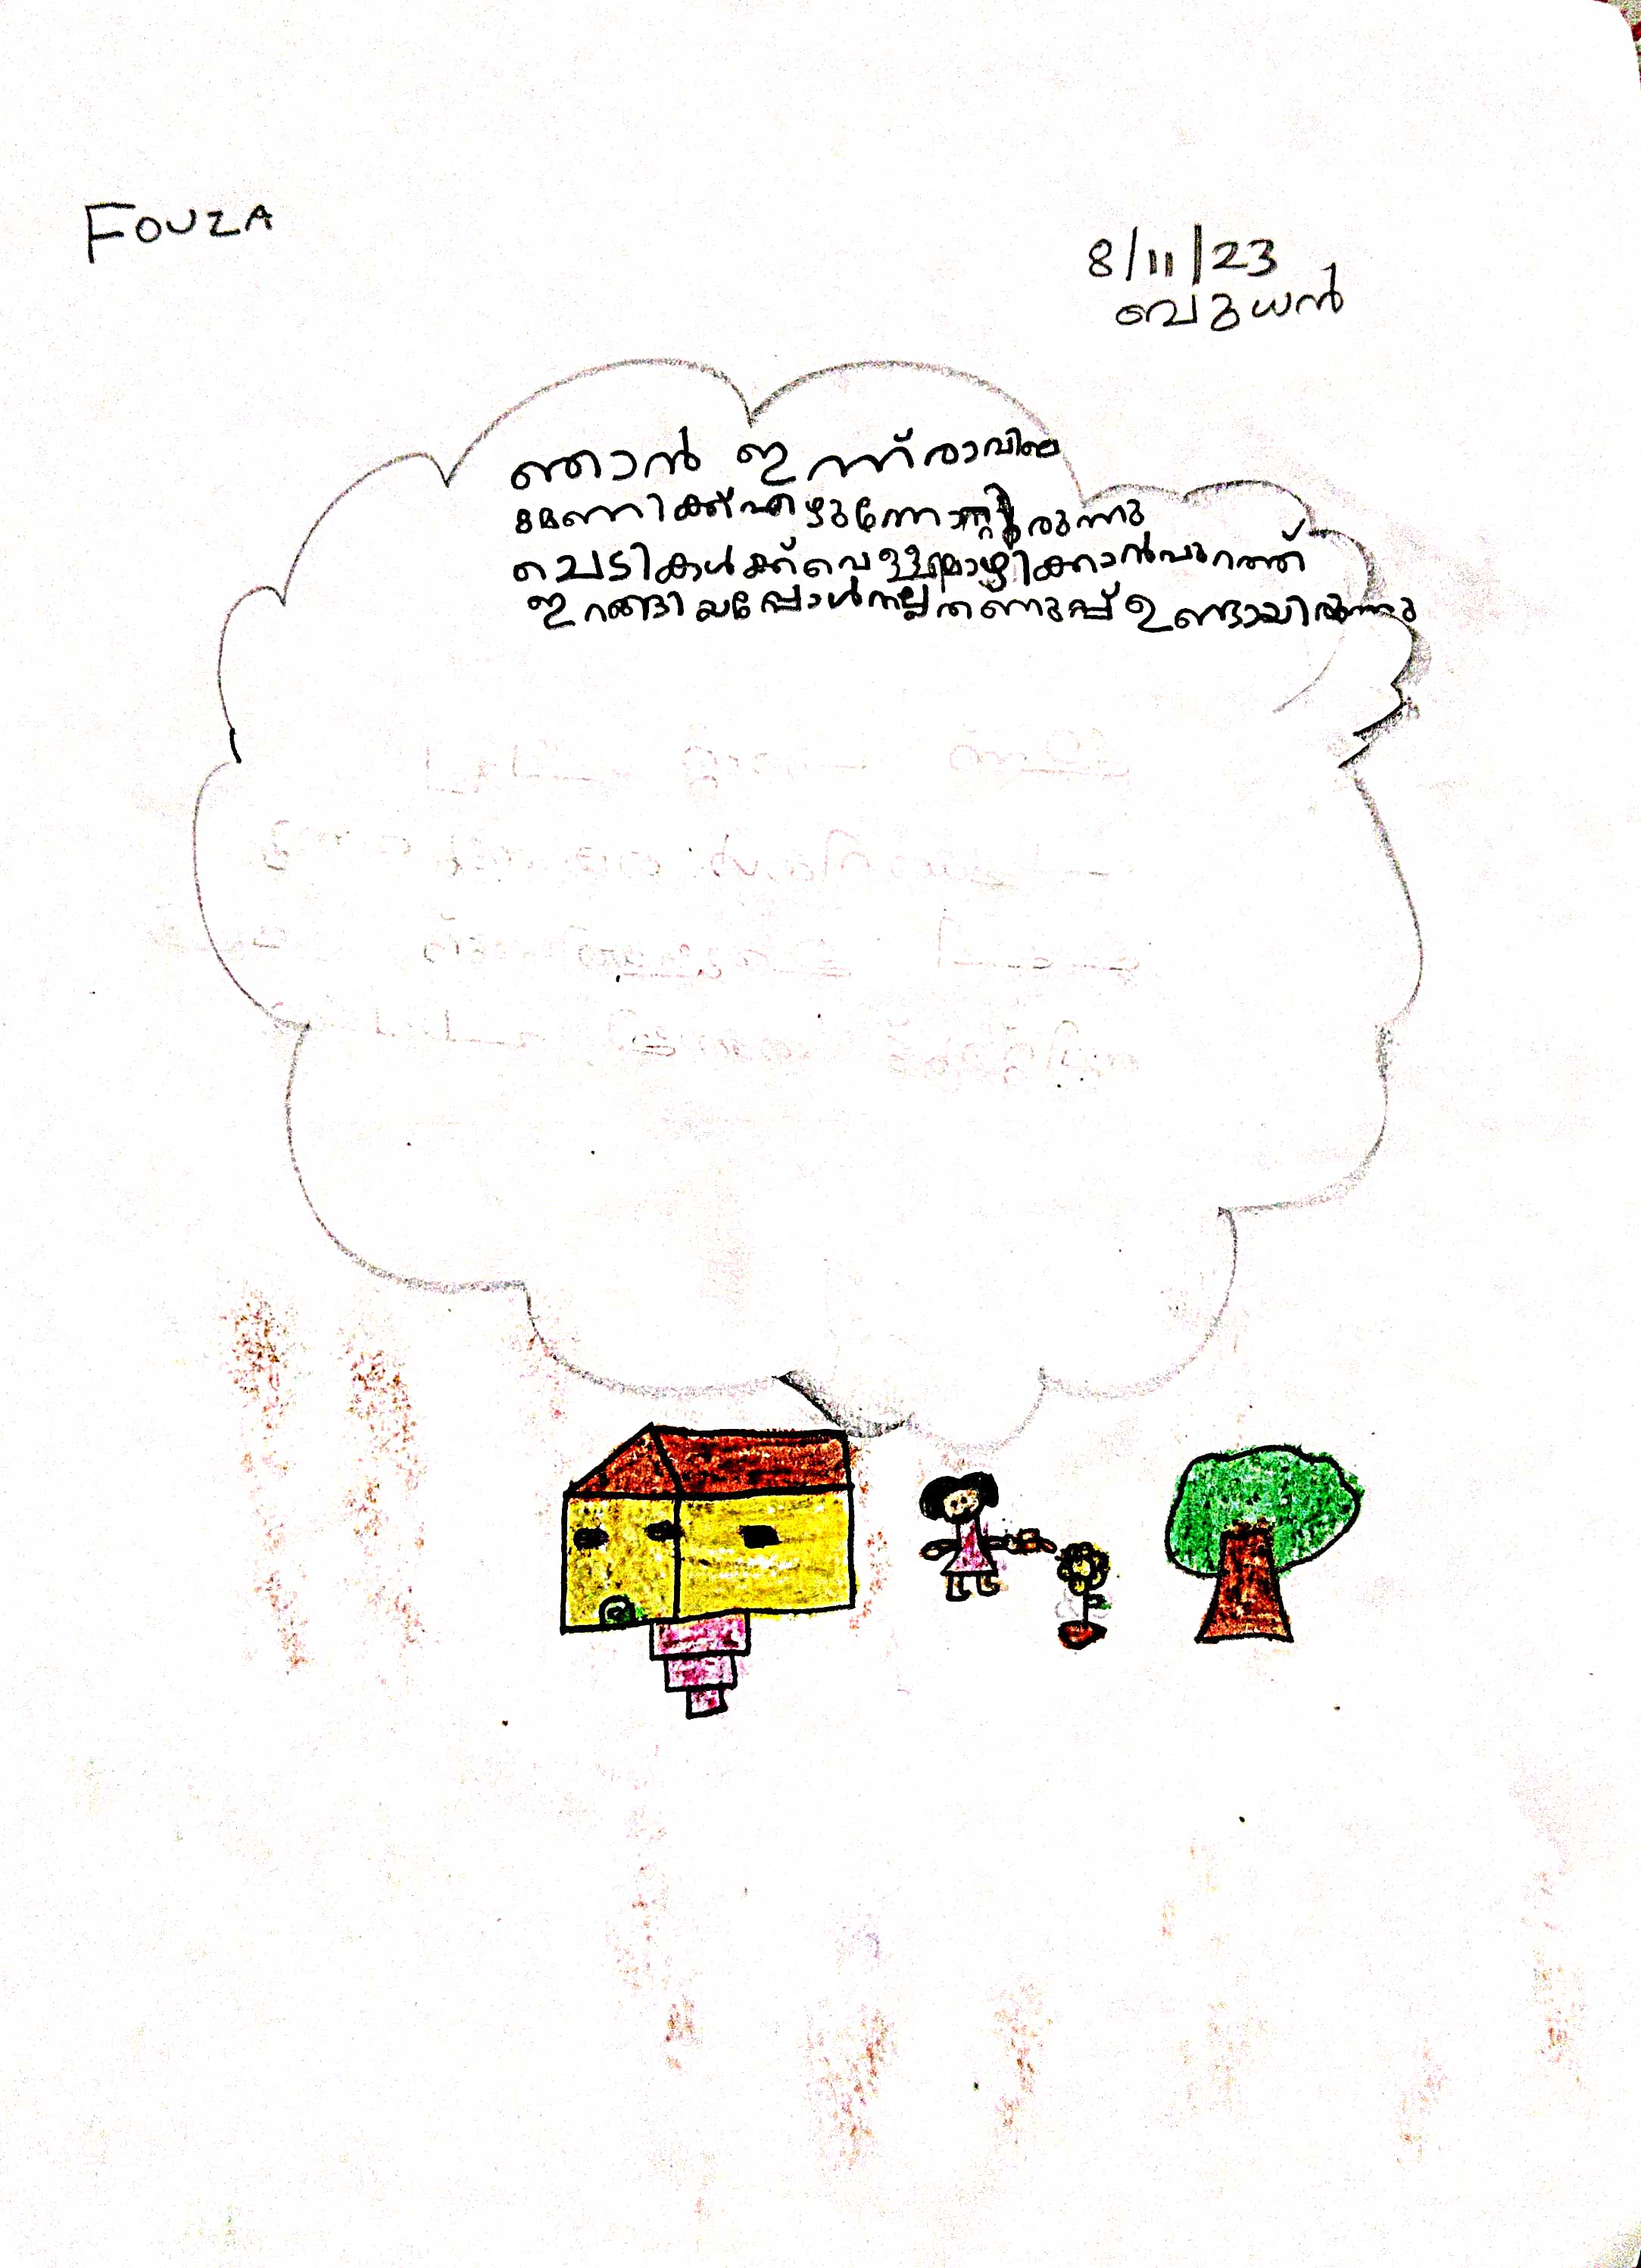 FOUZA
8/11/23
ബുധൻ
ഞാൻ ഇന്ന് രാവിലെ
8 മണിക്ക് എഴുന്നേറ്റിരുന്നു
ചെടികൾക്ക് വെള്ളമൊഴിക്കാൻ പുറത്ത്
ഇറങ്ങിയപ്പോൾ നല്ല തണുപ്പ് ഉണ്ടായിരുന്നു